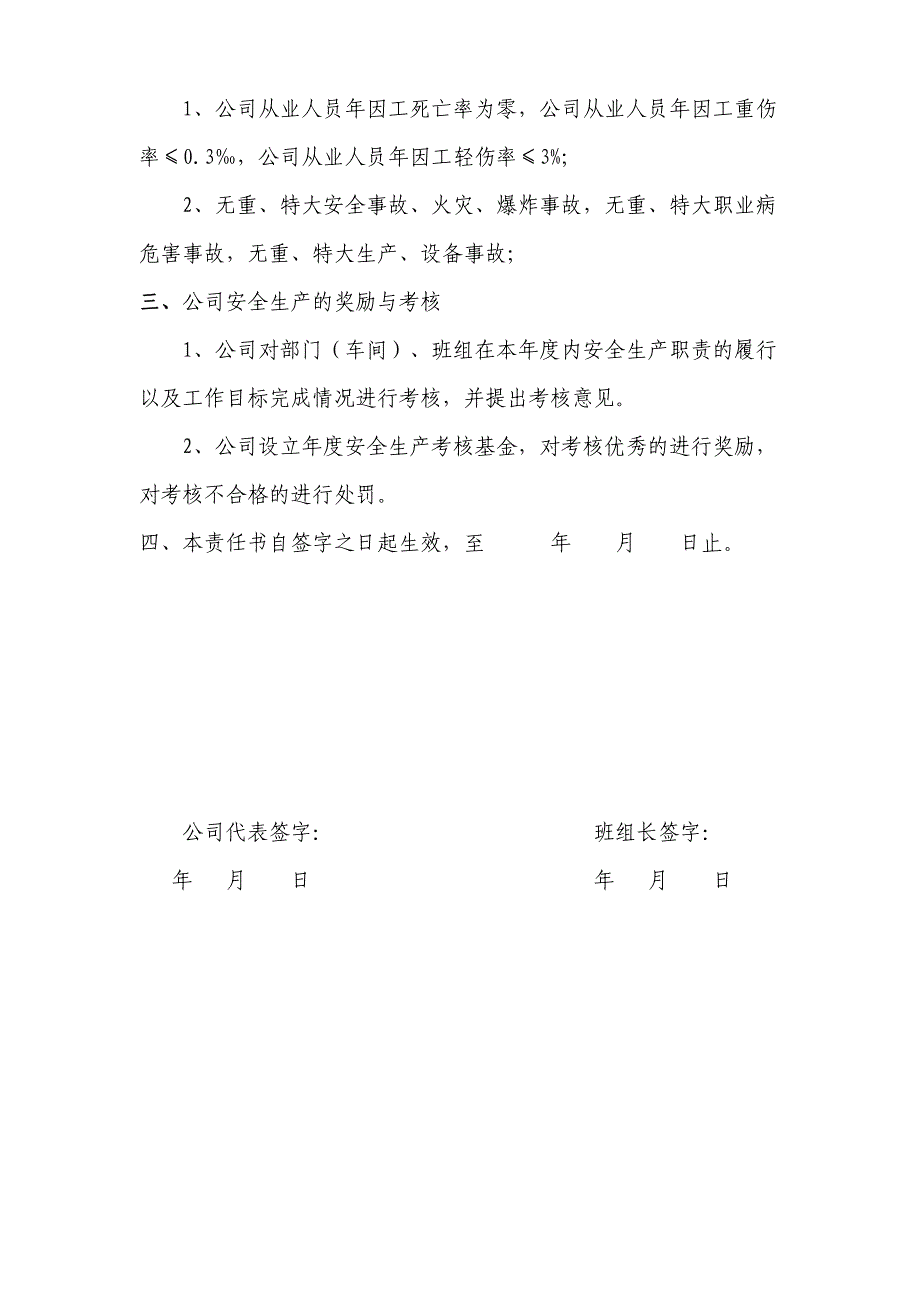 1、公司从业人员年因工死亡率为零，公司从业人员年因工重伤
率≤0.3‰，公司从业人员年因工轻伤率≤3%;
2、无重、特大安全事故、火灾、爆炸事故，无重、特大职业病
危害事故，无重、特大生产、设备事故；
三、公司安全生产的奖励与考核
1、公司对部门（车间）、班组在本年度内安全生产职责的履行
以及工作目标完成情况进行考核，并提出考核意见。
2、公司设立年度安全生产考核基金，对考核优秀的进行奖励，
对考核不合格的进行处罚。
四、本责任书自签字之日起生效，至 年 月 日止。
公司代表签字： 班组长签字：
年 月 日 年 月 日